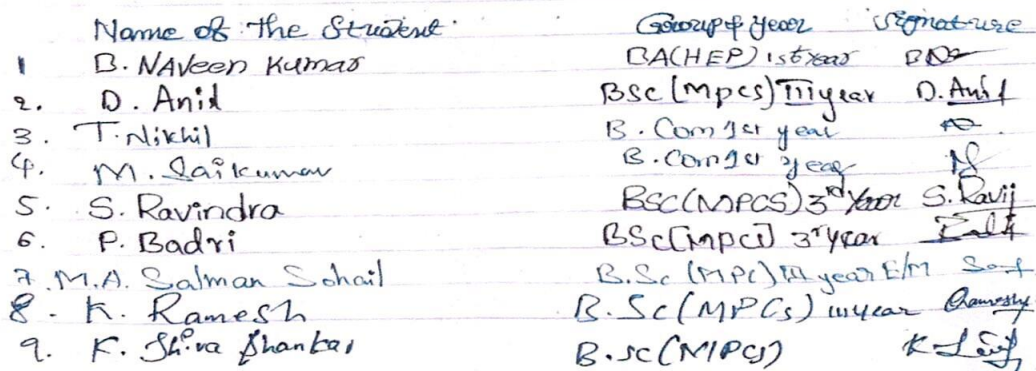 Name of the Student Group & year Signature
1 B. NAVeen Kumar BA(HEP) 1st year
2. D. Anil BSc (Mpcs) III year D. Anil
3. T. Nikhil B. Com 1st year
4. M. Saikumar B. Com 1st year
5. S. Ravindra BSC(MPCS) 3rd Year S. Ravij
6. P. Badri BSc[mpcs] 3rd year
7. M.A. Salman Sohail B.Sc (MPC) III year E/M
8. K. Ramesh B.Sc (MPCs) III year
9. K. Shiva Shankar B.sc (MPCS)